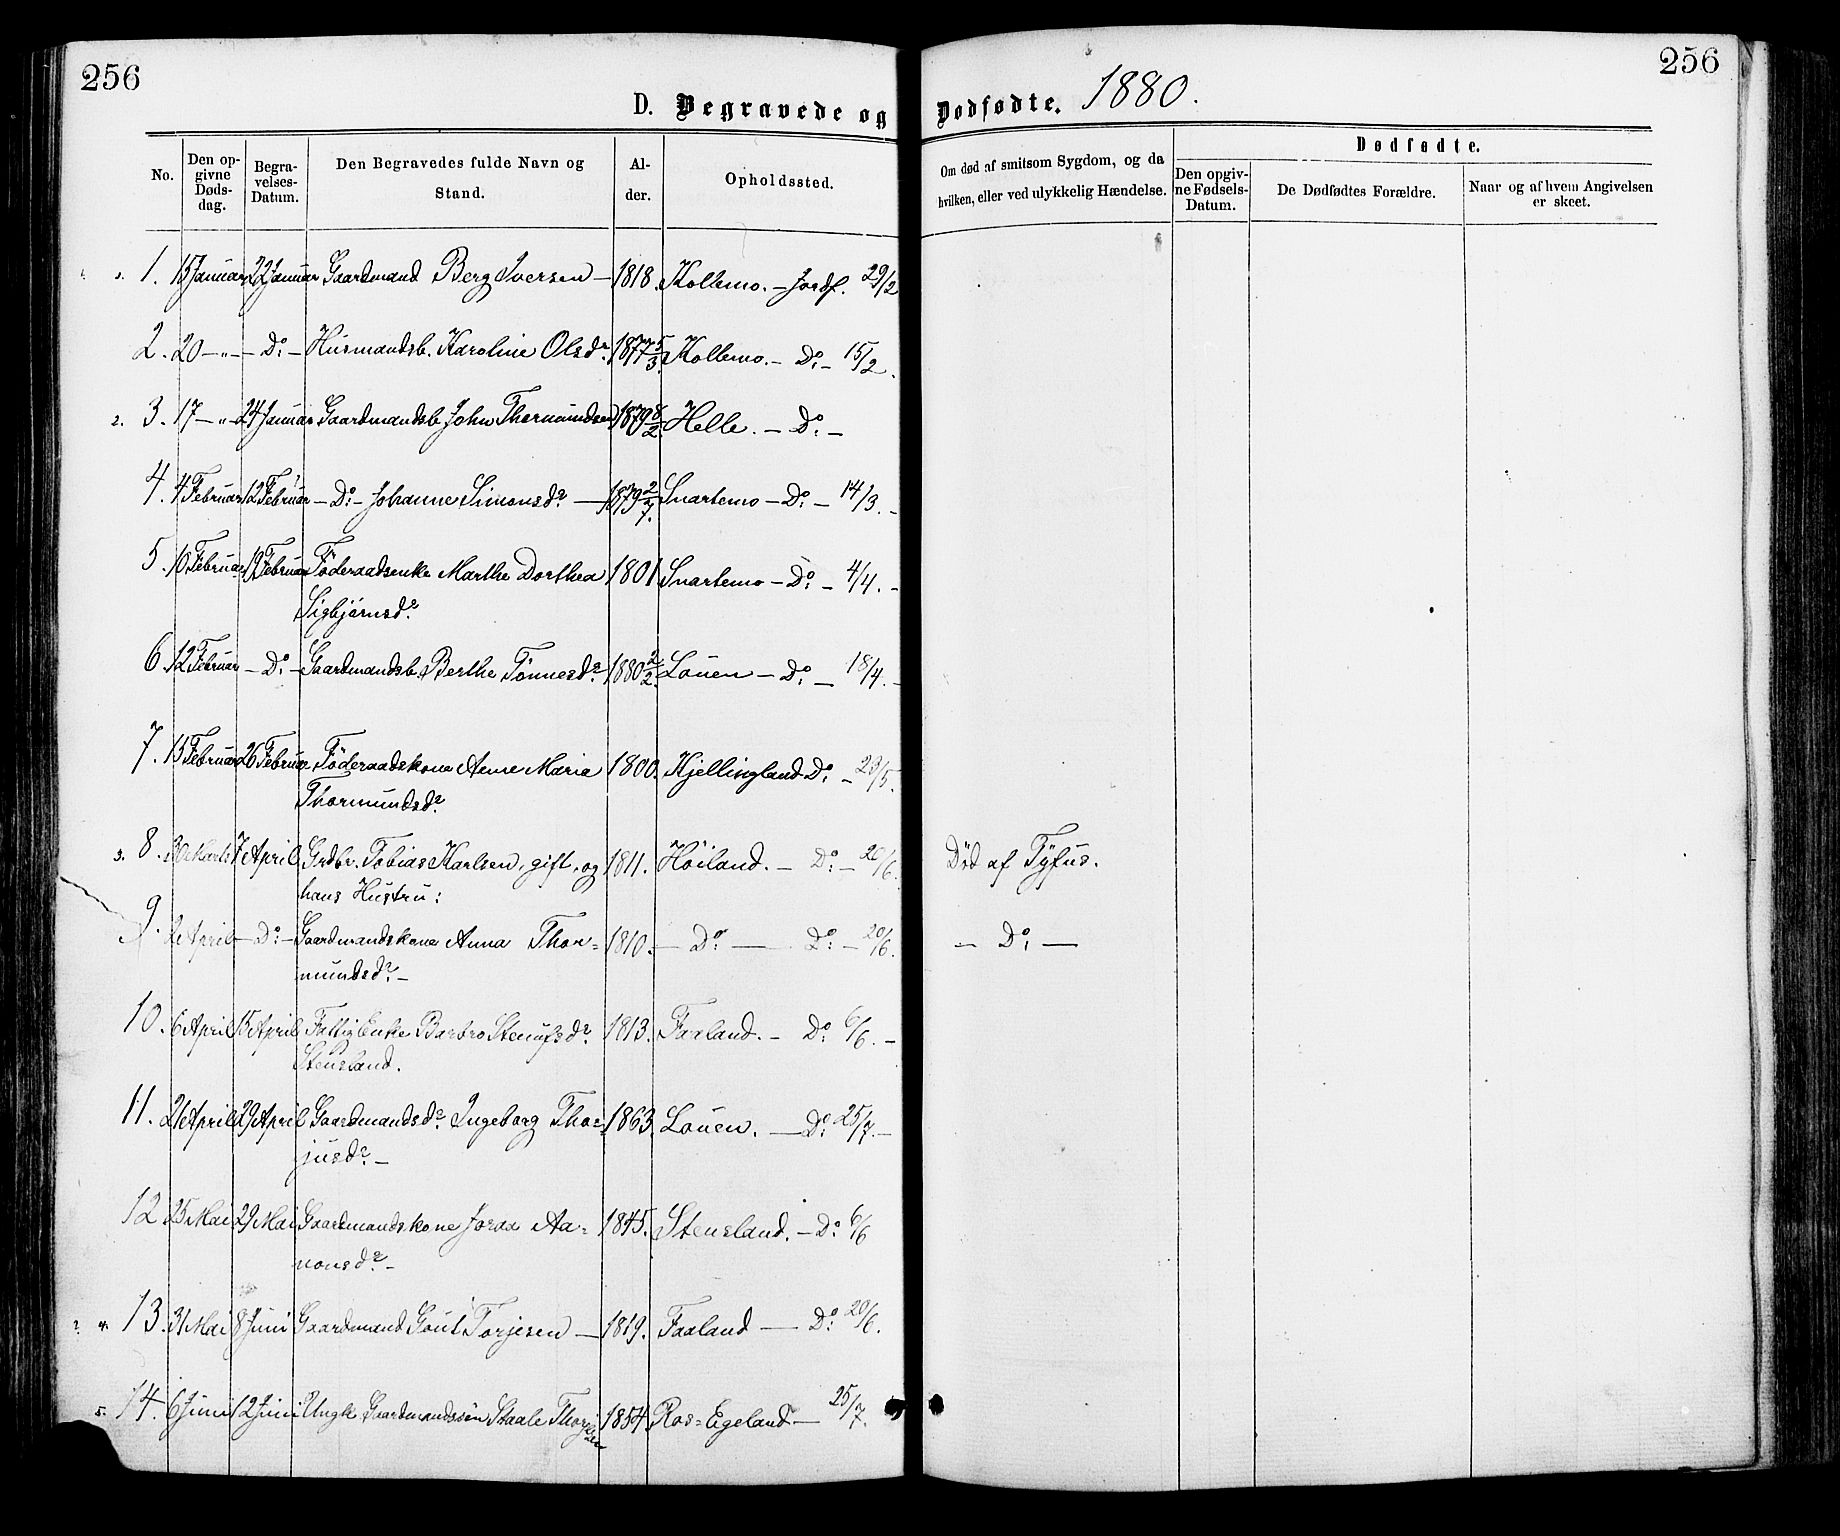 256
256
D. Begravede og Dødfødte. 1880.
No.
Den opgivne Dødsdag.
Begravelses-Datum.
Den Begravedes fulde Navn og Stand.
Alder.
Opholdssted.
Om død af smitsom Sygdom, og da hvilken, eller ved ulykkelig Hændelse.
Dødfødte.
Den opgivne Fødsels-Datum.
De Dødfødtes Forældre.
Naar og af hvem Angivelsen er skeet.
1. 15 Januar 22 Januar Gaardmand Berg Iversen — 1818. Kollemo. — Jordf. 29/2
2. 20 —"— — Do: — Husmandsb. Karoline Olsdr. 1877 5/3. Kollemo. — Do: — 15/2.
2. 3. 17 —"— 24 Januar Gaardmandsb. John Thormundsen 1879 8/2. Helle. — Do: —
4. 4 Februar 12 Februar — Do: — Johanne Simonsdr. — 1879 2/7. Snartemo — Do: — 14/3. —
5. 10 Februar 19 Februar Föderaadsenke Marthe Dorthea 1801 Snartemo — Do: — 4/4. —
Sigbjørnsdr.
6. 12 Februar — Do: — Gaardmandsb. Berthe Tønnesdr. 1880 2/2. Louen — Do: — 18/4. —
7. 15 Februar 26 Februar Föderaadskone Anne Maria 1800. Kjellingland Do: — 23/5.
Thormundsdr.
3. 8. 30 Marts 7 April Grdbr. Tobias Karlsen, gift, og 1811. Höiland. — Do: — 20/6. Död af Tyfus.
hans Hustru:
9. 2 April — Do: — Gaardmandskone Anna Thor= 1810. — Do: — Do: — 20/6. — Do: —
mundsdr. —
10. 6 April 15 April Fattig Enke Barbro Stenufsdr. 1813. Faaland. — Do: 6/6. —
Stensland.
11. 21 April 29 April Gaardmandsdr. Ingeborg Thor= 1863. Louen. — Do: 25/7. —
jusdr. —
12 25 Mai 29 Mai Gaardmandskone Joraa Aa= 1845. Stensland. — Do: 6/6
nonsdr. —
4. 13. 31 Mai 8 Juni Gaardmand Gout Torjesen — 1819. Faaland — Do: 20/6.
5. 14. 6 Juni 12 Juni Ungk. Gaardmandssön Staale Thorjelsen 1854. Ros=Egeland — 25/7.